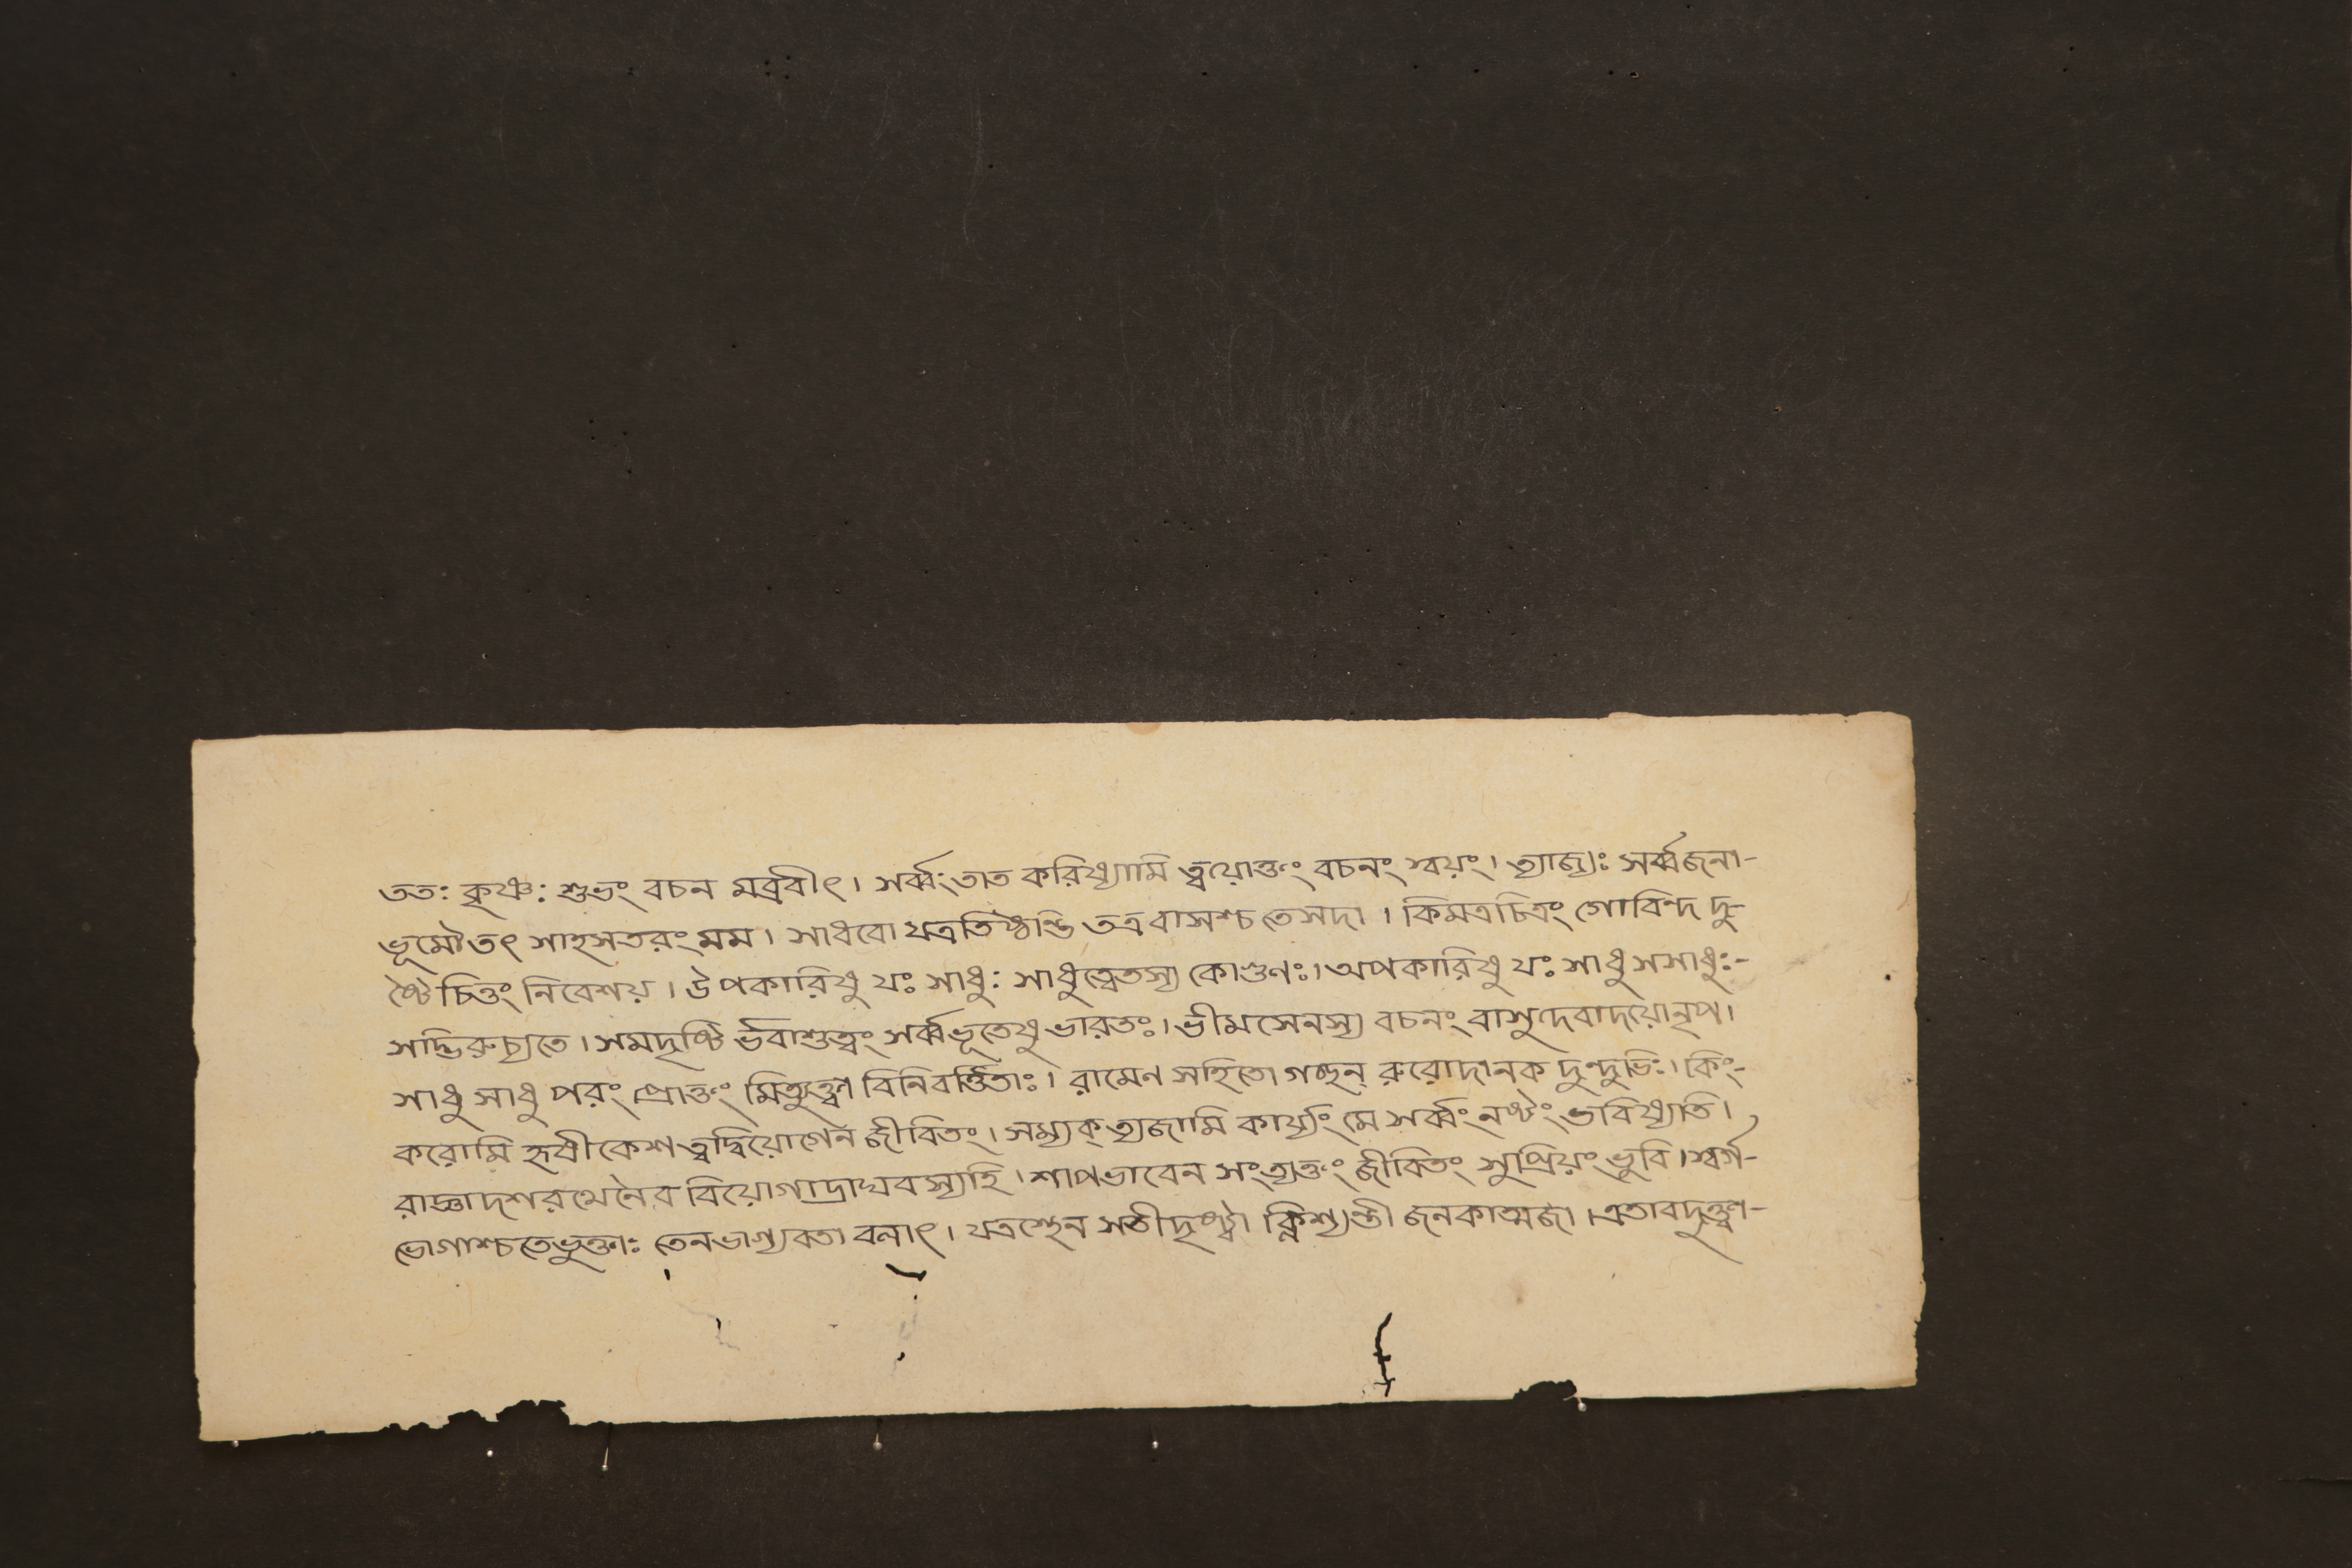 ততঃ কৃষ্ণঃ শুভং বচন মব্রবীৎ। সর্ব্বং তাত করিষ্যামি ত্বয়োক্তং বচনং স্বয়ং। ত্যাজ্যঃ সর্ব্বজনা-
ভূমৌ তৎ সাহসতরং মম। সাধবো যত্রতিষ্ঠন্তি তত্র বাসশ্চ তেসদা। কিমত্রচিত্রং গোবিন্দ দু-
ষ্টৈ চিত্তং নিবেশয়। উপকারিষু যঃ সাধুঃ সাধুত্বেতস্য কোগুণঃ। অপকারিষু যঃ সাধু সসাধুঃ-
সদ্ভিরুচ্যতে। সমদৃষ্টি র্ভবাশুত্বং সর্ব্বভূতেষু ভারতঃ। ভীমসেনস্য বচনং বাসুদেবাদয়োনৃপ।
সাধু সাধু পরং প্রোক্তং মিত্যুক্ত্বা বিনিবর্ত্তিতাঃ। রামেণ সহিতো গচ্ছন্ রুরোদানক দুন্দুভিঃ। কিং-
করোমি হৃষীকেশ ত্বদ্বিয়োগেন জীবিতং। সম্যক্ ত্যজামি কার্য্যং মে সর্ব্বং নষ্টং ভবিষ্যতি।
রাজ্ঞাদশরথেনৈব বিয়োগাদ্রাঘবস্যহি। শাপভাবেন সংত্যক্তং জীবিতং সুপ্রিয়ং ভুবি। স্বর্গ-
ভোগাশ্চতেভুক্তাঃ তেনভাগ্যবতা বলাৎ। যত্রস্থেন সতীদৃষ্ট্বা ক্লিশ্যন্তী জনকাত্মজা। এতাবদুক্ত্বা-